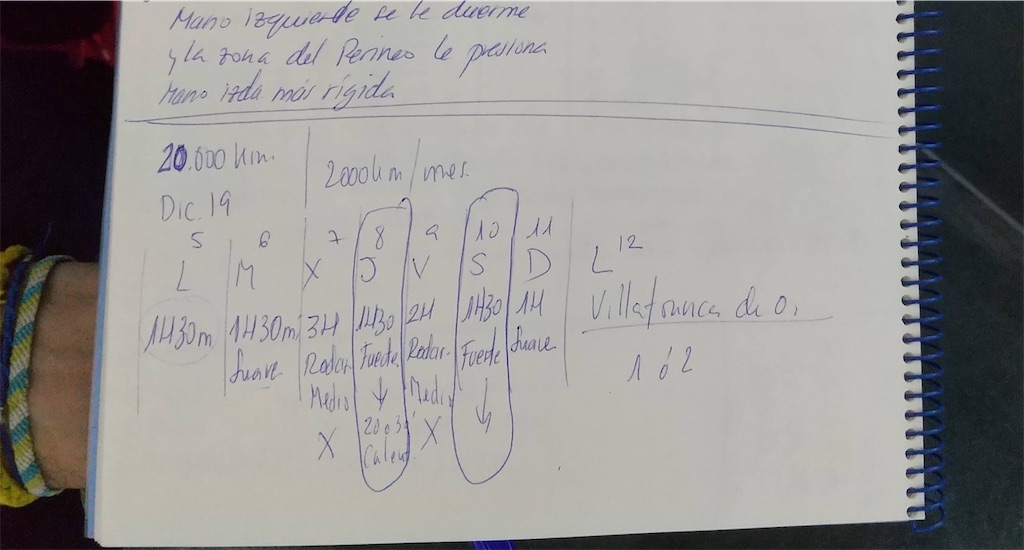 Mano izquierda se le duerme
y la zona del Perineo le presiona
Mano izda más rígida
20.000 km.
2000 km/mes.
Dic. 19
5 6 7 8 9 10 11 12
L M X J V S D L
1H30m 1H30m 3H 1H30 2H 1H30 1H Villafranca de O.
Suave Rodar Fuerte Rodar Fuerte Suave 1 ó 2
Medio ↓ Medio ↓
X 20 o 3 X
Calent.